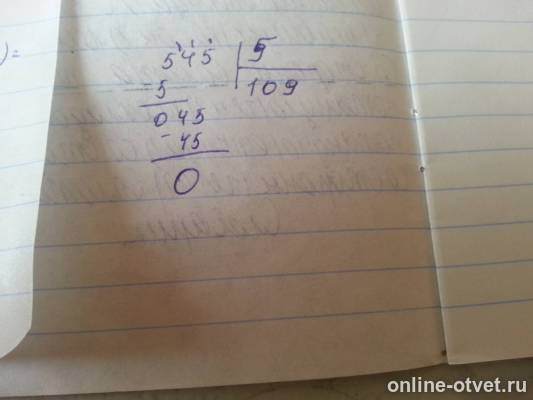 )=
545 5
5 109
045
- 45
0
online-otvet.ru